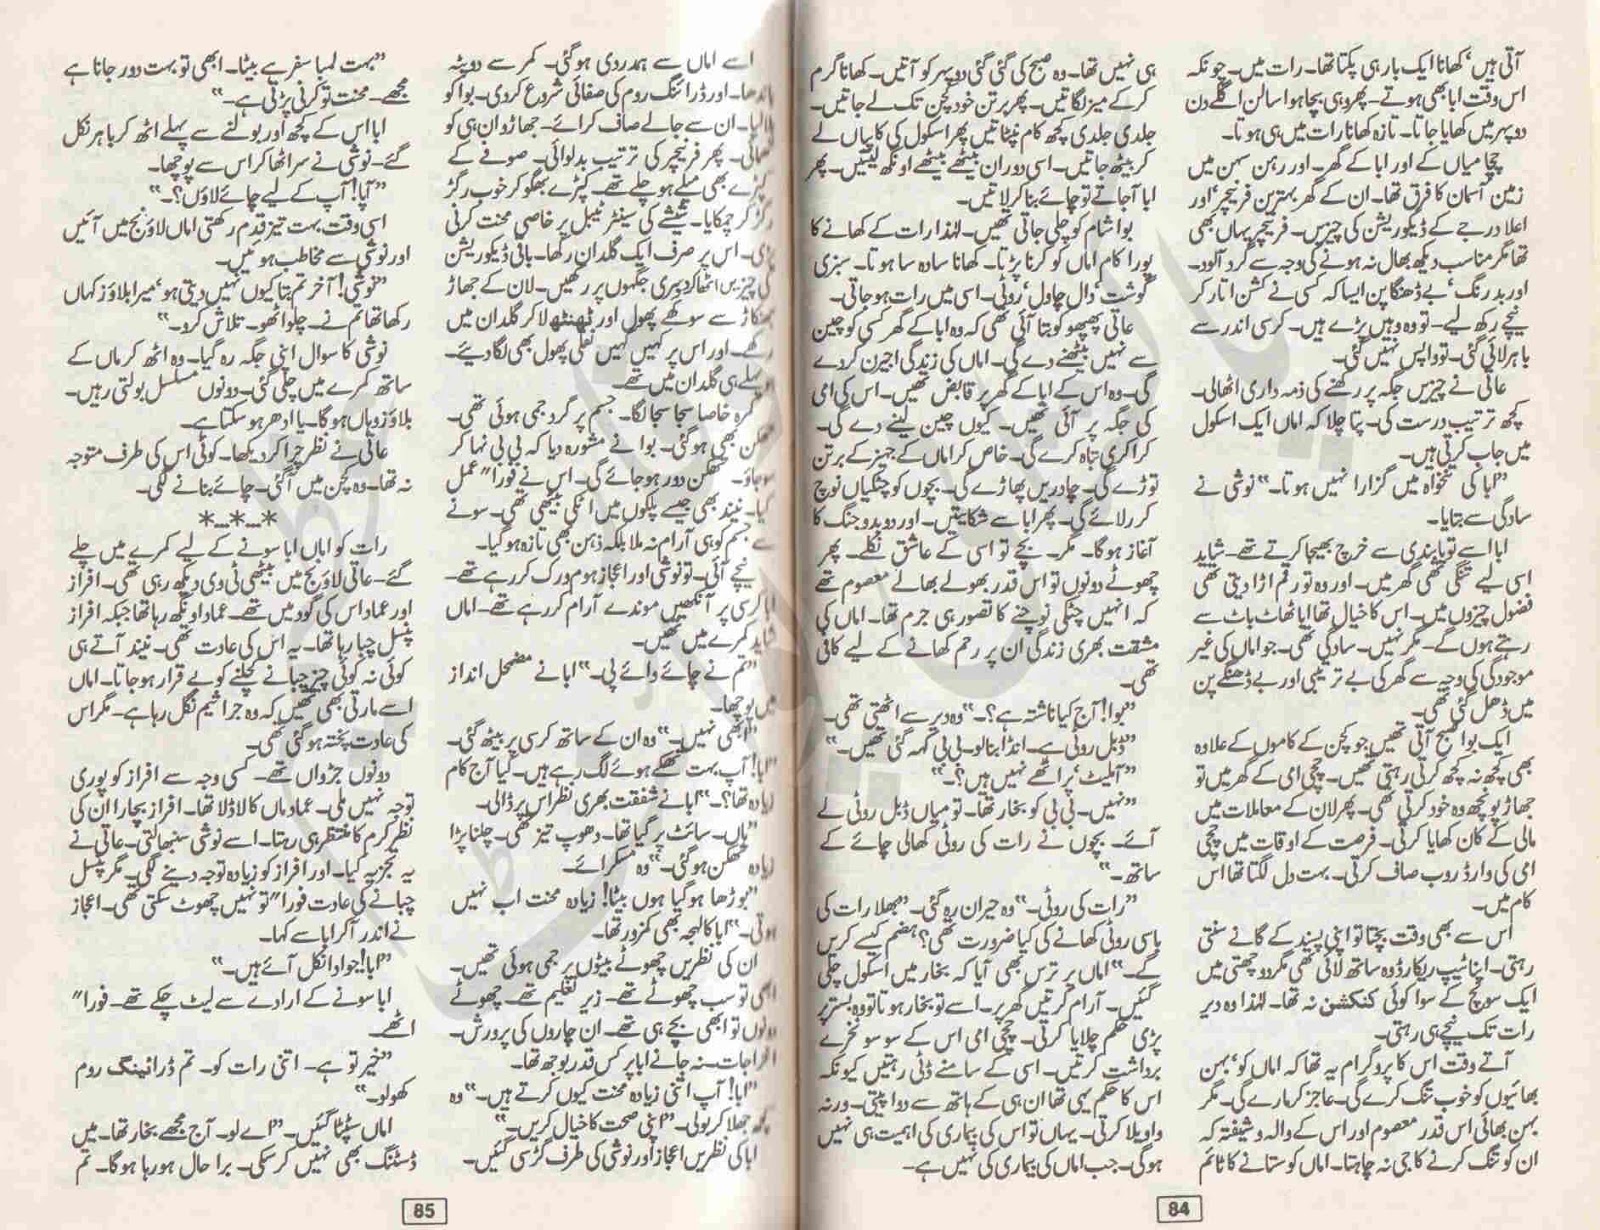 آتی ہیں‘ کھانا ایک بار ہی پکتا تھا۔ رات میں۔ چونکہ
اس وقت ابا بھی ہوتے۔ پھر وہی بچا ہوا سالن اگلے دن
دوپہر میں کھایا جاتا۔ تازہ کھانا رات میں ہی ہوتا۔
چچا میاں کے اور ابا کے گھر۔ اور رہن سہن میں
زمین آسمان کا فرق تھا۔ ان کے گھر بہترین فرنیچر‘ اور
اعلا درجے کے ڈیکوریشن کی چیزیں۔ فرنیچر یہاں بھی
تھا مگر مناسب دیکھ بھال نہ ہونے کی وجہ سے گرد آلود۔
اور بدرنگ‘ بے ڈھنگا پن ایسا کہ کسی نے کشن اتار کر
نیچے رکھ لیے۔ تو وہ وہیں پڑے ہیں۔ کرسی اندر سے
باہر لائی گئی۔ تو واپس نہیں گئی۔
عاتی نے چیزیں جگہ پر رکھنے کی ذمہ داری اٹھالی۔
کچھ ترتیب درست کی۔ پتا چلا کہ اماں ایک اسکول
میں جاب کرتی ہیں۔
”ابا کی تنخواہ میں گزارا نہیں ہوتا۔“ نوشی نے
سادگی سے بتایا۔
ابا اسے تو پابندی سے خرچ بھیجا کرتے تھے۔ شاید
اسی لیے تنگی تھی گھر میں۔ اور وہ تو رقم اڑا دیتی تھی
فضول چیزوں میں۔ اس کا خیال تھا ابا ٹھاٹ باٹ سے
رہتے ہوں گے۔ مگر نہیں۔ سادگی تھی۔ جو اماں کی غیر
موجودگی کی وجہ سے گھر کی بے ترتیبی اور بے ڈھنگے پن
میں ڈھل گئی تھی۔
ایک بوا صبح آتی تھیں جو کچن کے کاموں کے علاوہ
بھی کچھ نہ کچھ کرتی رہتی تھیں۔ چچی امی کے گھر میں تو
جھاڑ پونچھ وہ خود کرتی تھی۔ پھر لان کے معاملات میں
مالی کے کان کھایا کرتی۔ فرصت کے اوقات میں چچی
امی کی وارڈ روب صاف کرتی۔ بہت دل لگتا تھا اس
کام میں۔
اس سے بھی وقت بچتا تو اپنی پسند کے گانے سنتی
رہتی۔ اپنا ٹیپ ریکارڈ وہ ساتھ لائی تھی مگر دو چھتی میں
ایک سوئچ کے سوا کوئی کنکشن نہ تھا۔ لہٰذا وہ دیر
رات تک نیچے ہی رہتی۔
آتے وقت اس کا پروگرام یہ تھا کہ اماں کو‘ بہن
بھائیوں کو خوب تنگ کرے گی۔ عاجز کر مارے گی۔ مگر
بہن بھائی اس قدر معصوم اور اس کے والہ و شیفتہ کہ
ان کو تنگ کرنے کا جی نہ چاہتا۔ اماں کو ستانے کا ٹائم
ہی نہیں تھا۔ وہ صبح کی گئی گئی دوپہر کو آتیں۔ کھانا گرم
کر کے میز لگاتیں۔ پھر برتن خود کچن تک لے جاتیں۔
جلدی جلدی کچھ کام نپٹاتیں پھر اسکول کی کاپیاں لے
کر بیٹھ جاتیں۔ اسی دوران بیٹھے بیٹھے اونگھ لیتیں۔ پھر
ابا آجاتے تو چائے بنا کر لاتیں۔
بوا شام کو چلی جاتی تھیں۔ لہٰذا رات کے کھانے کا
پورا کام اماں کو کرنا پڑتا۔ کھانا سادہ سا ہوتا۔ سبزی
گوشت‘ دال چاول‘ روٹی۔ اسی میں رات ہو جاتی۔
عاتی پھپھو کو بتا آئی تھی کہ وہ ابا کے گھر کسی کو چین
سے نہیں بیٹھنے دے گی۔ اماں کی زندگی اجیرن کردے
گی۔ وہ اس کے ابا کے گھر پر قابض تھیں۔ اس کی امی
کی جگہ پر آئی تھیں۔ کیوں چین لینے دے گی۔
کراکری تباہ کرے گی۔ خاص کر اماں کے جہیز کے برتن
توڑے گی۔ چادریں پھاڑے گی۔ بچوں کو چٹکیاں نوچ
کر رلائے گی۔ پھر ابا سے شکایتیں۔ اور دو بدو جنگ کا
آغاز ہوگا۔ مگر۔ بچے تو اسی کے عاشق نکلے۔ پھر
چھوٹے دونوں تو اس قدر بھولے بھالے معصوم تھے
کہ انہیں چٹکی نوچنے کا تصور ہی جرم تھا۔ اماں کی
مشقت بھری زندگی ان پر رحم کھانے کے لیے کافی
تھی۔
”بوا! آج کیا ناشتہ ہے؟۔“ وہ دیر سے اٹھتی تھی۔
”ڈبل روٹی ہے۔ انڈا بنالو۔ بی بی کہہ گئی تھیں۔“
”آملیٹ‘ پراٹھے نہیں ہیں؟۔“
”نہیں۔ بی بی کو بخار تھا۔ تو میاں ڈبل روٹی لے
آئے۔ بچوں نے رات کی روٹی کھالی چائے کے
ساتھ۔“
”رات کی روٹی۔“ وہ حیران رہ گئی۔ ”بھلا رات کی
باسی روٹی کھانے کی کیا ضرورت تھی؟ ہضم کیسے کریں
گے۔“ اماں پر ترس بھی آیا کہ بخار میں اسکول چلی
گئیں۔ آرام کرتیں گھر پر۔ اسے تو بخار ہوتا تو وہ بستر پر
پڑی حکم چلایا کرتی۔ چچی امی اس کے سو سو نخرے
برداشت کرتیں۔ اسی کے سامنے ڈٹی رہتیں کیونکہ
اس کا حکم یہی تھا ان ہی کے ہاتھ سے دوا پیتی۔ ورنہ
واویلا کرتی۔ یہاں تو اس کی بیماری کی اہمیت ہی نہیں
ہوگی۔ جب اماں کی بیماری کی نہیں ہے۔
84
اسے اماں سے ہمدردی ہوگئی۔ کمر سے دوپٹہ
باندھا۔ اور ڈرائنگ روم کی صفائی شروع کردی۔ بوا کو
بلالیا۔ ان سے جالے صاف کرائے۔ جھاڑو ان ہی کو
تھمائی۔ پھر فرنیچر کی ترتیب بدلوائی۔ صوفے کے
کپڑے بھی میلے ہو چلے تھے۔ کپڑے بھگو کر خوب رگڑ
رگڑ کر چمکایا۔ شیشے کی سینٹر ٹیبل پر خاصی محنت کرنی
پڑی۔ اس پر صرف ایک گلدان رکھا۔ باقی ڈیکوریشن
کی چیزیں اٹھا کر دوسری جگہوں پر رکھیں۔ لان کے جھاڑ
جھنکاڑ سے سوکھے پھول اور ٹھنٹھ لاکر گلدان میں
رکھے۔ اور اس پر کہیں کہیں نقلی پھول بھی لگا دیے۔
جو پہلے ہی گلدان میں تھے۔
کمرہ خاصا سجا سجا لگا۔ جسم پر گرد جمی ہوئی تھی۔
تھکن بھی ہوگئی۔ بوا نے مشورہ دیا کہ بی بی نہا کر
سوجاؤ۔ تھکن دور ہوجائے گی۔ اس نے فوراً“ عمل
کیا۔ نیند بھی جیسے پلکوں میں اٹکی بیٹھی تھی۔ سونے
سے جسم کو ہی آرام نہ ملا بلکہ ذہن بھی تازہ ہوگیا۔
نیچے آئی۔ تو نوشی اور اعجاز ہوم ورک کررہے تھے۔
ابا کرسی پر آنکھیں موندے آرام کررہے تھے۔ اماں
شاید کمرے میں تھیں۔
”تم نے چائے وائے پی۔“ ابا نے مضمحل انداز
میں پوچھا۔
”ابھی نہیں۔“ وہ ان کے ساتھ کرسی پر بیٹھ گئی۔
”ابا! آپ بہت تھکے ہوئے لگ رہے ہیں۔ کیا آج کام
زیادہ تھا؟۔“ ابا نے شفقت بھری نظر اس پر ڈالی۔
”ہاں۔ سائٹ پر گیا تھا۔ دھوپ تیز تھی۔ چلنا پڑا
زیادہ تھکن ہوگئی۔“ وہ مسکرائے۔
”بوڑھا ہوگیا ہوں بیٹا! زیادہ محنت اب نہیں
ہوتی۔“ ابا کا لہجہ بھی کمزور تھا۔
ان کی نظریں چھوٹے بیٹوں پر جمی ہوئی تھیں۔
ابھی تو سب چھوٹے تھے۔ زیر تعلیم تھے۔ چھوٹے
دونوں تو ابھی بچے ہی تھے۔ ان چاروں کی پرورش۔
اخراجات۔ نہ جانے ابا پر کس قدر بوجھ تھا۔
”ابا! آپ اتنی زیادہ محنت کیوں کرتے ہیں۔“ وہ
کچھ جھلا کر بولی۔ ”اپنی صحت کا خیال کریں۔“
ابا کی نظریں اعجاز اور نوشی کی طرف گڑ سی گئیں۔
”بہت لمبا سفر ہے بیٹا۔ ابھی تو بہت دور جانا ہے
مجھے۔ محنت تو کرنی پڑتی ہے۔“
ابا اس کے کچھ اور بولنے سے پہلے اٹھ کر باہر نکل
گئے۔ نوشی نے سر اٹھا کر اس سے پوچھا۔
”آپا! آپ کے لیے چائے لاؤں؟۔“
اسی وقت بہت تیز قدم رکھتی اماں لاؤنج میں آئیں
اور نوشی سے مخاطب ہوئیں۔
”نوشی! آخر تم بتا کیوں نہیں دیتی ہو‘ میرا بلاؤز کہاں
رکھا تھا تم نے۔ چلو اٹھو۔ تلاش کرو۔“
نوشی کا سوال اپنی جگہ رہ گیا۔ وہ اٹھ کر ماں کے
ساتھ کمرے میں چلی گئی۔ دونوں مسلسل بولتی رہیں۔
بلاؤز وہاں ہوگا۔ یا ادھر ہو سکتا ہے۔
عاتی نے نظر چرا کر دیکھا۔ کوئی اس کی طرف متوجہ
نہ تھا۔ وہ کچن میں آگئی۔ چائے بنانے لگی۔
*…*…*
رات کو اماں ابا سونے کے لیے کمرے میں چلے
گئے۔ عاتی لاؤنج میں بیٹھی ٹی وی دیکھ رہی تھی۔ افراز
اور عماد اس کی گود میں تھے۔ عماد اونگھ رہا تھا جبکہ افراز
پنسل چبا رہا تھا۔ یہ اس کی عادت تھی۔ نیند آتے ہی
کوئی نہ کوئی چیز چبانے کچلنے کو بے قرار ہوجاتا۔ اماں
اسے مارتی بھی تھیں کہ وہ جراثیم نگل رہا ہے۔ مگر اس
کی عادت پختہ ہوگئی تھی۔
دونوں جڑواں تھے۔ کسی وجہ سے افراز کو پوری
توجہ نہیں ملی۔ عماد ماں کا لاڈلا تھا۔ افراز بچارا ان کی
نظر کرم کا منتظر ہی رہتا۔ اسے نوشی سنبھالتی۔ عاتی نے
یہ تجزیہ کیا۔ اور افراز کو زیادہ توجہ دینے لگی۔ مگر پنسل
چبانے کی عادت فوراً“ تو نہیں چھوٹ سکتی تھی۔ اعجاز
نے اندر آکر ابا سے کہا۔
”ابا! جواد انکل آئے ہیں۔“
ابا سونے کے ارادے سے لیٹ چکے تھے۔ فوراً“
اٹھے۔
”خیر تو ہے۔ اتنی رات کو۔ تم ڈرائینگ روم
کھولو۔“
اماں سٹپٹا گئیں۔ ”اے لو۔ آج مجھے بخار تھا۔ میں
ڈسٹنگ بھی نہیں کرسکی۔ برا حال ہو رہا ہوگا۔ تم
85